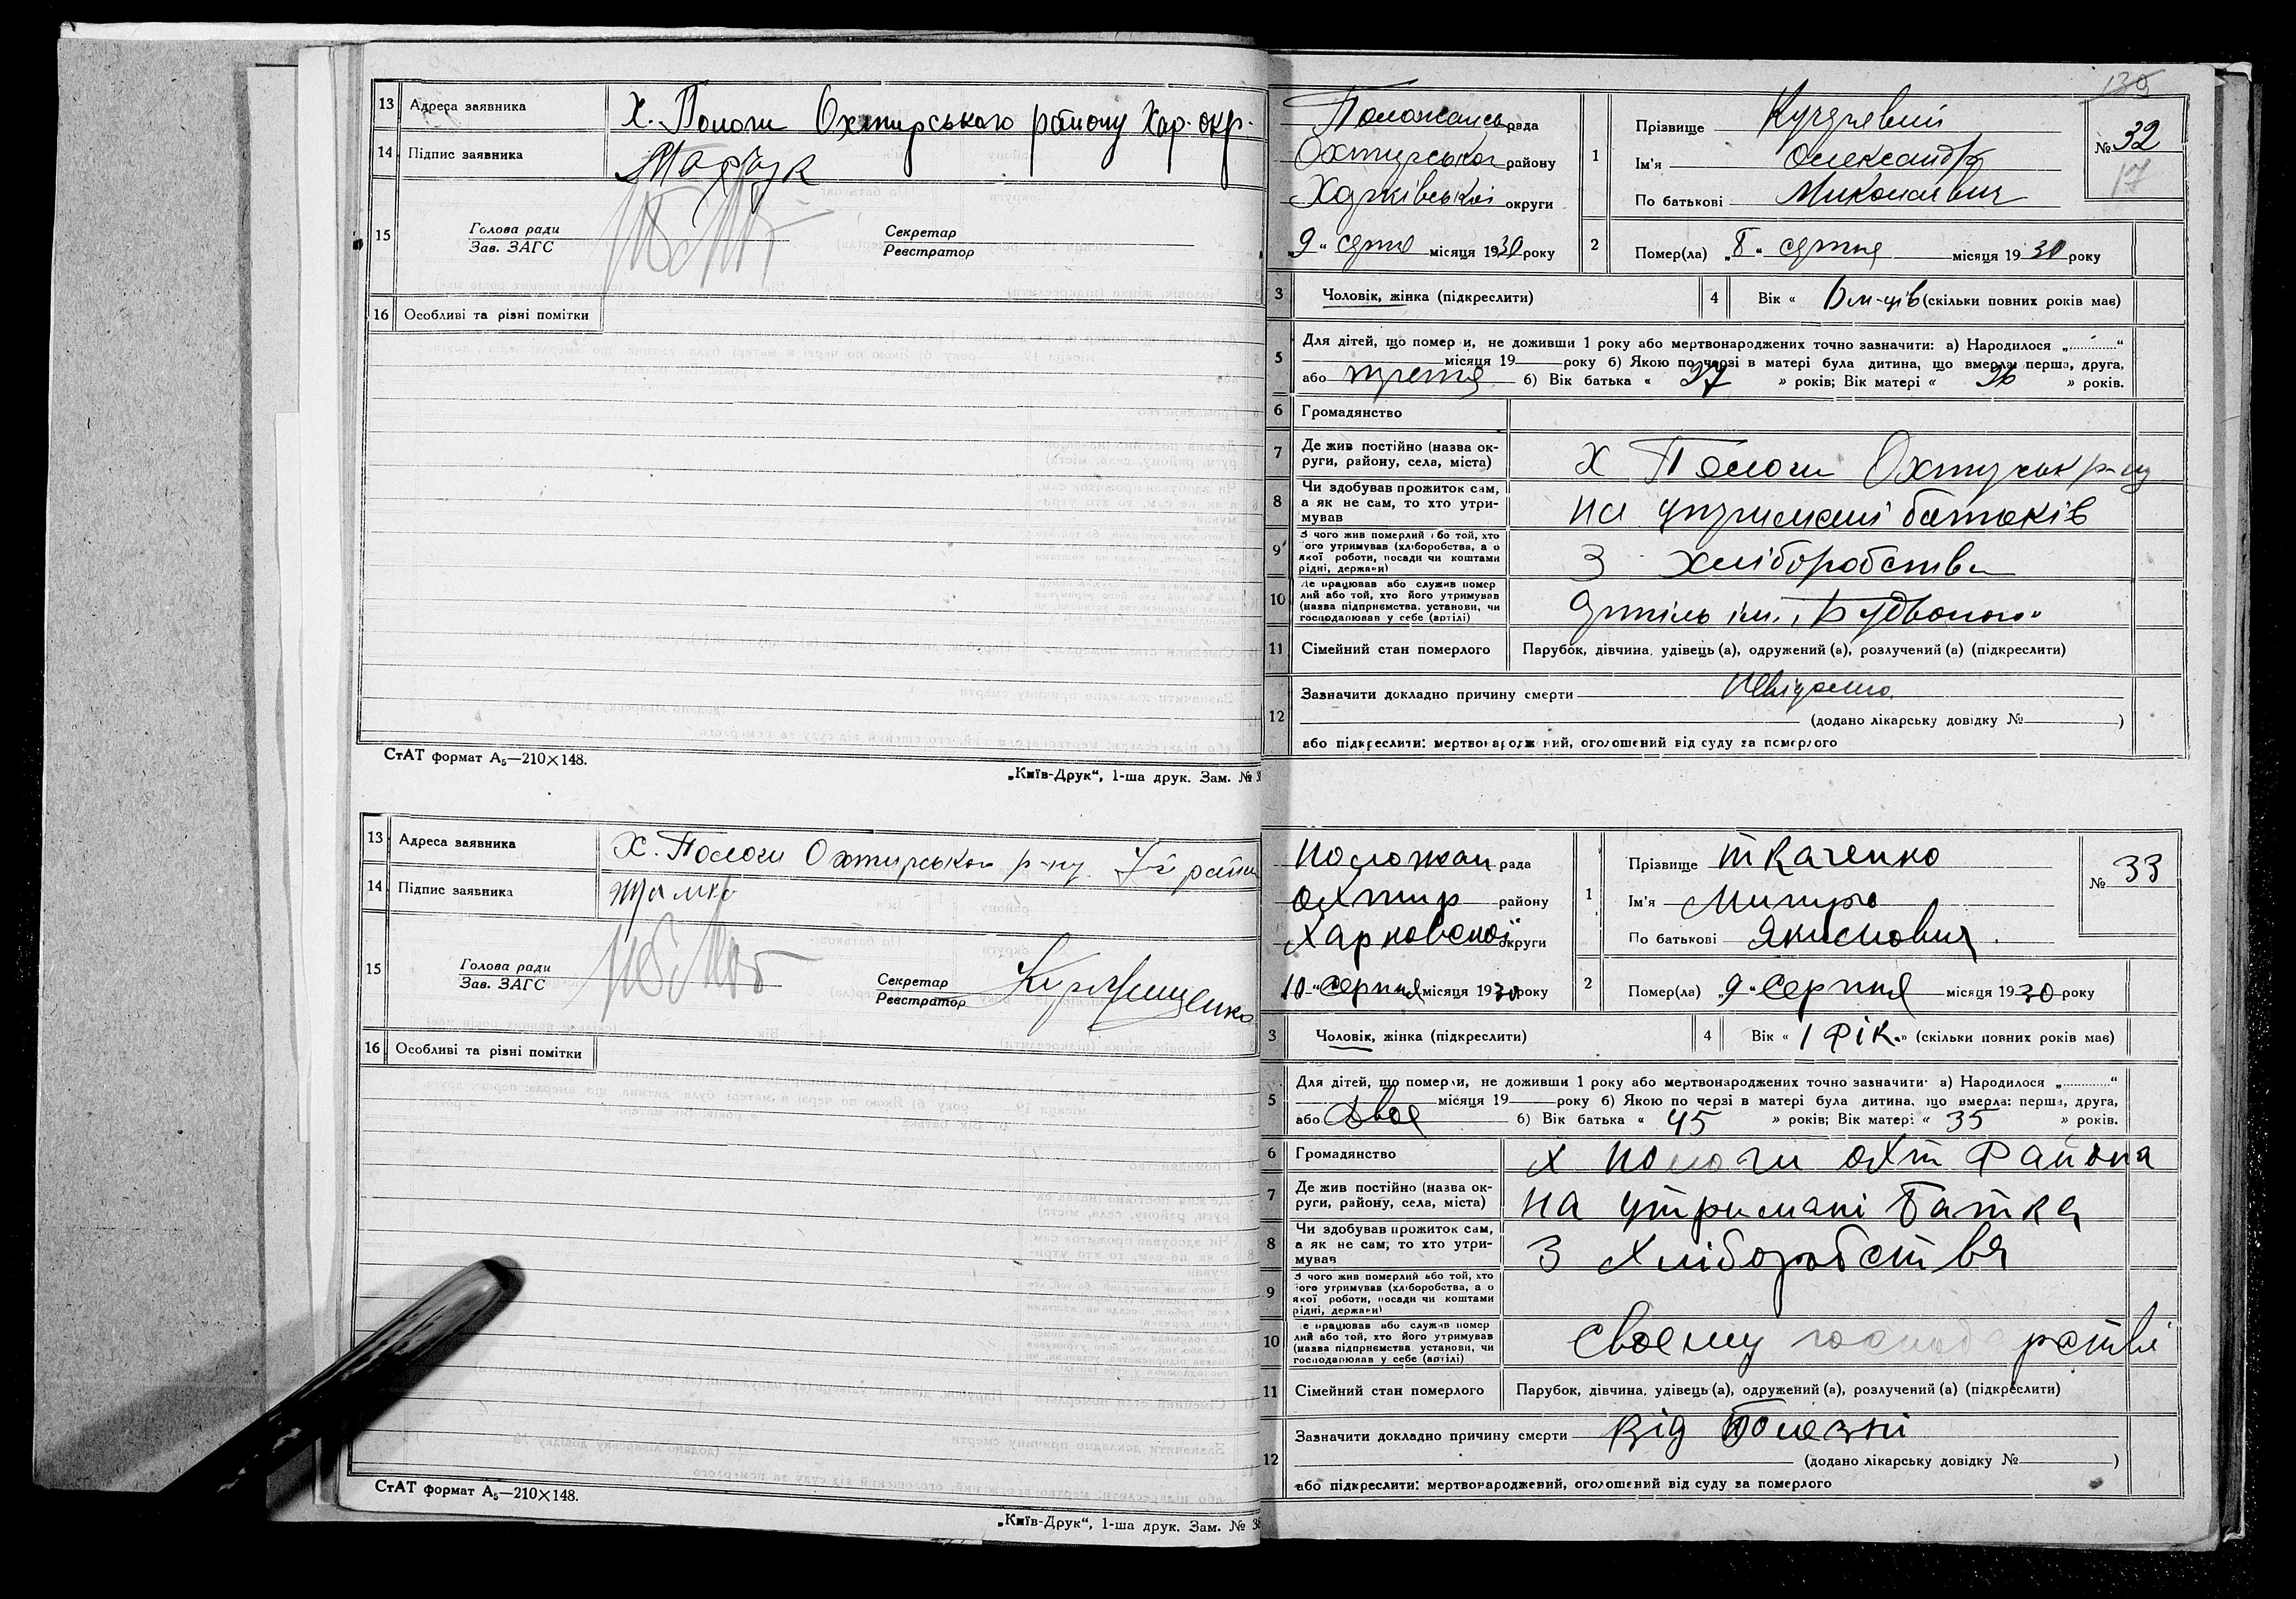 13 Адреса заявника Х. Пологи Охтирського району Хар. окр.
14 Підпис заявника
15 Голова ради
Зав. ЗАГС
Секретар
Реєстратор
16 Особливі та різні помітки
СтАТ формат А₅—210×148.
„Київ-Друк“, 1-ша друк. Зам. №
13 Адреса заявника Х. Пологи Охтирського р-ну
14 Підпис заявника
15 Голова ради
Зав. ЗАГС
Секретар
Реєстратор
16 Особливі та різні помітки
СтАТ формат А₅—210×148.
„Київ-Друк“, 1-ша друк. Зам. №
139
рада
Охтирського району
Харківської округи
„9“ серпня місяця 1930 року
1 Прізвище
Ім'я Олександр
По батькові Миколаєвич
№ 32
17
2 Помер(ла) „8“ серпня місяця 1930 року
3 Чоловік, жінка (підкреслити)
4 Вік « м-ців (скільки повних років має)
5 Для дітей, що померли, не доживши 1 року або мертвонароджених точно зазначити: а) Народилося „............“
місяця 19 року б) Якою по черзі в матері була дитина, що вмерла: перша, друга,
або третя б) Вік батька « 37 » років; Вік матері « » років.
6 Громадянство
7 Де жив постійно (назва округи, району, села, міста) Х Пологи Охтирськ р-ну
8 Чи здобував прожиток сам,
а як не сам, то хто утримував на утримані батьків
9 З чого жив померлий або той, хто
його утримував (хліборобства, а о
якої роботи, посади чи коштами
рідні, держави) З хліборобства
10 Де працював або служив помер
лий або той, хто його утримував
(назва підприємства, установи, чи
господарював у себе (артілі) Артіль ім. „Будьоного“
11 Сімейний стан померлого Парубок, дівчина, удівець (а), одружений (а), розлучений (а) (підкреслити)
12 Зазначити докладно причину смерти Невідомо
(додано лікарську довідку № )
або підкреслити: мертвонароджений, оголошений від суду за померлого
Положан рада
Охтир району
Харковської округи
10 „серпня місяця 1930 року
1 Прізвище Ткаченко
Ім'я
По батькові Якимович
№ 33
2 Помер(ла) „9“ серпня місяця 1930 року
3 Чоловік, жінка (підкреслити)
4 Вік « 1 рік. » (скільки повних років має)
5 Для дітей, що померли, не доживши 1 року або мертвонароджених точно зазначити: а) Народилося „............“
місяця 19 року б) Якою по черзі в матері була дитина, що вмерла: перша, друга,
або двоє б) Вік батька « 45 » років; Вік матері « 35 » років.
6 Громадянство х Пологи Охт района
7 Де жив постійно (назва округи, району, села, міста) на утримані батка
8 Чи здобував прожиток сам,
а як не сам, то хто утримував З хліборобства
9 З чого жив померлий або той, хто
його утримував (хліборобства, а о
якої роботи, посади чи коштами
рідні, держави)
10 Де працював або служив помер
лий або той, хто його утримував
(назва підприємства, установи, чи
господарював у себе (артілі) своєму господарстві
11 Сімейний стан померлого Парубок, дівчина, удівець (а), одружений (а), розлучений (а) (підкреслити)
12 Зазначити докладно причину смерти від болезні
(додано лікарську довідку № )
або підкреслити: мертвонароджений, оголошений від суду за померлого